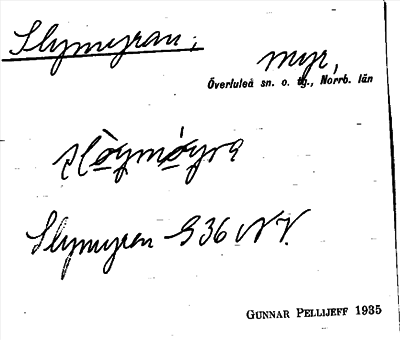 Slymyran;
myr,
Överluleå sn. o. tg., Norrb. län
slòymóyra
Slymyren G 36 NV.
GUNNAR PELLIJEFF 1935